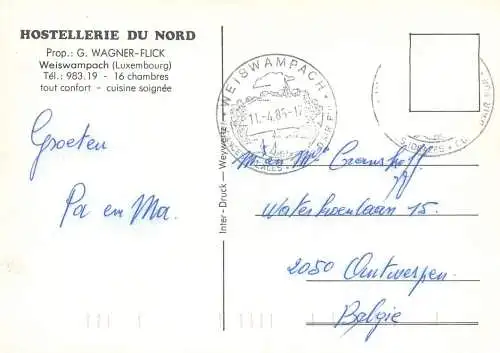 HOSTELLERIE DU NORD
Prop.: G. WAGNER-FLICK
Weiswampach (Luxembourg)
Tél.: 983.19 - 16 chambres
tout confort - cuisine soignée
Groeten
Pa en Ma.
Inter-Druck — Weywertz
WEISWAMPACH
11.-4.85-17
M en Mme
Waterhoenlaan 15.
2050 Antwerpen.
Belgie